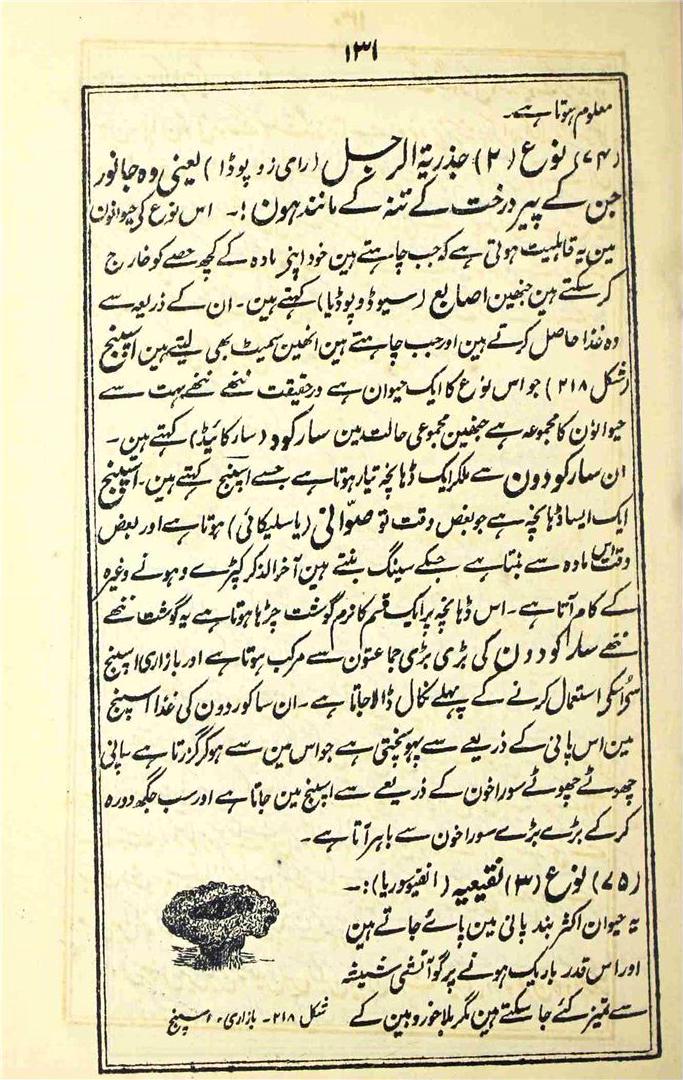 ۱۳۱
معلوم ہوتا ہے۔
(۷۴) نوع (۲) جذریۃ الرجل (رای زو پوڈا) یعنی وہ جانور
جن کے پیر درخت کے تنہ کے مانند ہون :۔ اس نوع کی حیوانون
مین یہ قابلیت ہوتی ہے کہ جب چاہتے ہین خود اپنی مادہ کے کچھ حصے کو خارج
کر سکتے ہین جنھین اصابع (سیوڈو پوڈیا) کہتے ہین۔ ان کے ذریعہ سے
وہ غذا حاصل کرتے ہین اور جب چاہتے ہین انھین سمیٹ بھی لیتے ہین اسپنج
(شکل ۲۱۸) جو اس نوع کا ایک حیوان ہے درحقیقت ننھے ننھے بہت سے
حیوانون کا مجموعہ ہے جنھین مجموعی حالت مین سارکود (سارکائیڈ) کہتے ہین۔
ان سارکودون سے ملکر ایک ڈہانچہ تیار ہوتا ہے جسے اسپنج کہتے ہین۔ اسپنج
ایک ایسا ڈہانچہ ہے جو بعض وقت تو صوّانی (یا سلیکائی) ہوتا ہے اور بعض
وقت اس مادہ سے بنتا ہے جسکے سینگ بنتے ہین آخر الذکر کپڑے دہونے وغیرہ
کے کام آتا ہے۔ اس ڈہانچہ پر ایک قسم کا نرم گوشت چڑہا ہوتا ہے یہ گوشت ننھے
ننھے سارکودون کی بڑی بڑی جماعتون سے مرکب ہوتا ہے اور بازاری اسپنج
سے اسکی استعمال کرنے کے پہلے نکال ڈالا جاتا ہے۔ ان ساکوردون کی غذا اسپنج
مین اس پانی کے ذریعے سے پہونچتی ہے جو اس مین سے ہوکر گزرتا ہے۔ پانی
چھوٹے چھوٹے سوراخون کے ذریعے سے اسپنج مین جاتا ہے اور سب جگھ دورہ
کر کے بڑے بڑے سوراخون سے باہر آتا ہے۔
(۷۵) نوع (۳) نقیعیہ (انفیوسوریا) :۔
یہ حیوان اکثر بند پانی مین پائے جاتے ہین
اور اس قدر باریک ہونے پر گو آتشی شیشہ
سے تمیز کئے جا سکتے ہین مگر بلا خوردبین کے
شکل ۲۱۸۔ بازاری اسپنج